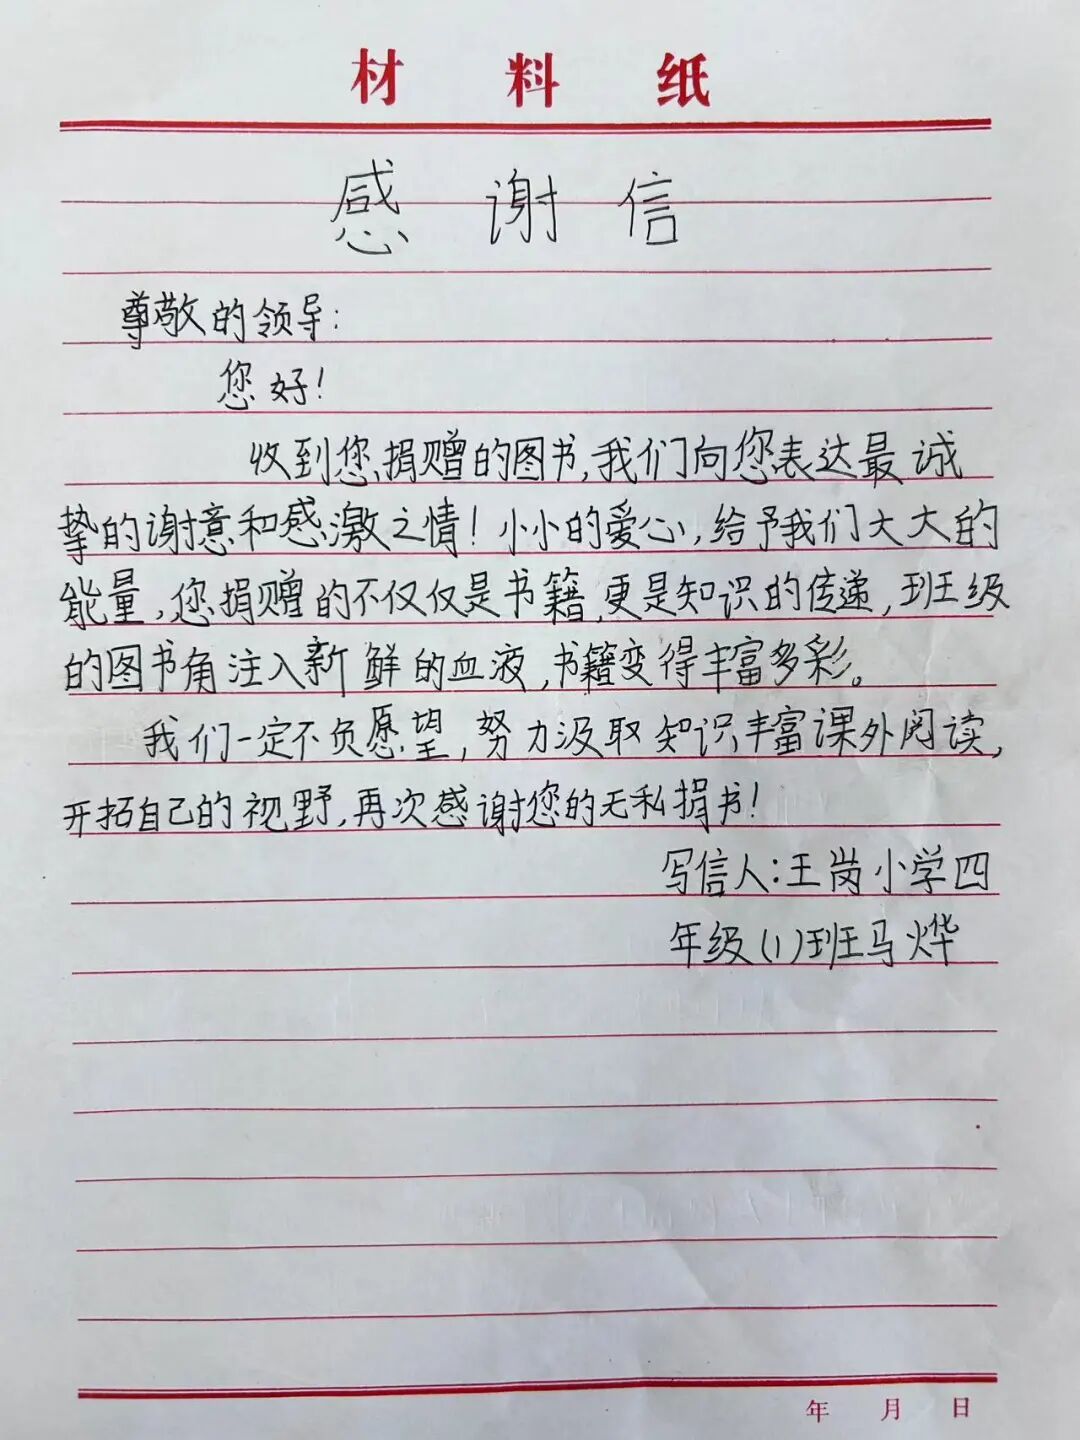 材料纸
感谢信
尊敬的领导：
您好！
收到您捐赠的图书，我们向您表达最诚
挚的谢意和感激之情！小小的爱心，给予我们大大的
能量，您捐赠的不仅仅是书籍，更是知识的传递，班级
的图书角注入新鲜的血液，书籍变得丰富多彩。
我们一定不负愿望，努力汲取知识丰富课外阅读，
开拓自己的视野，再次感谢您的无私捐书！
写信人：王岗小学四
年级（1）班马烨
年 月 日